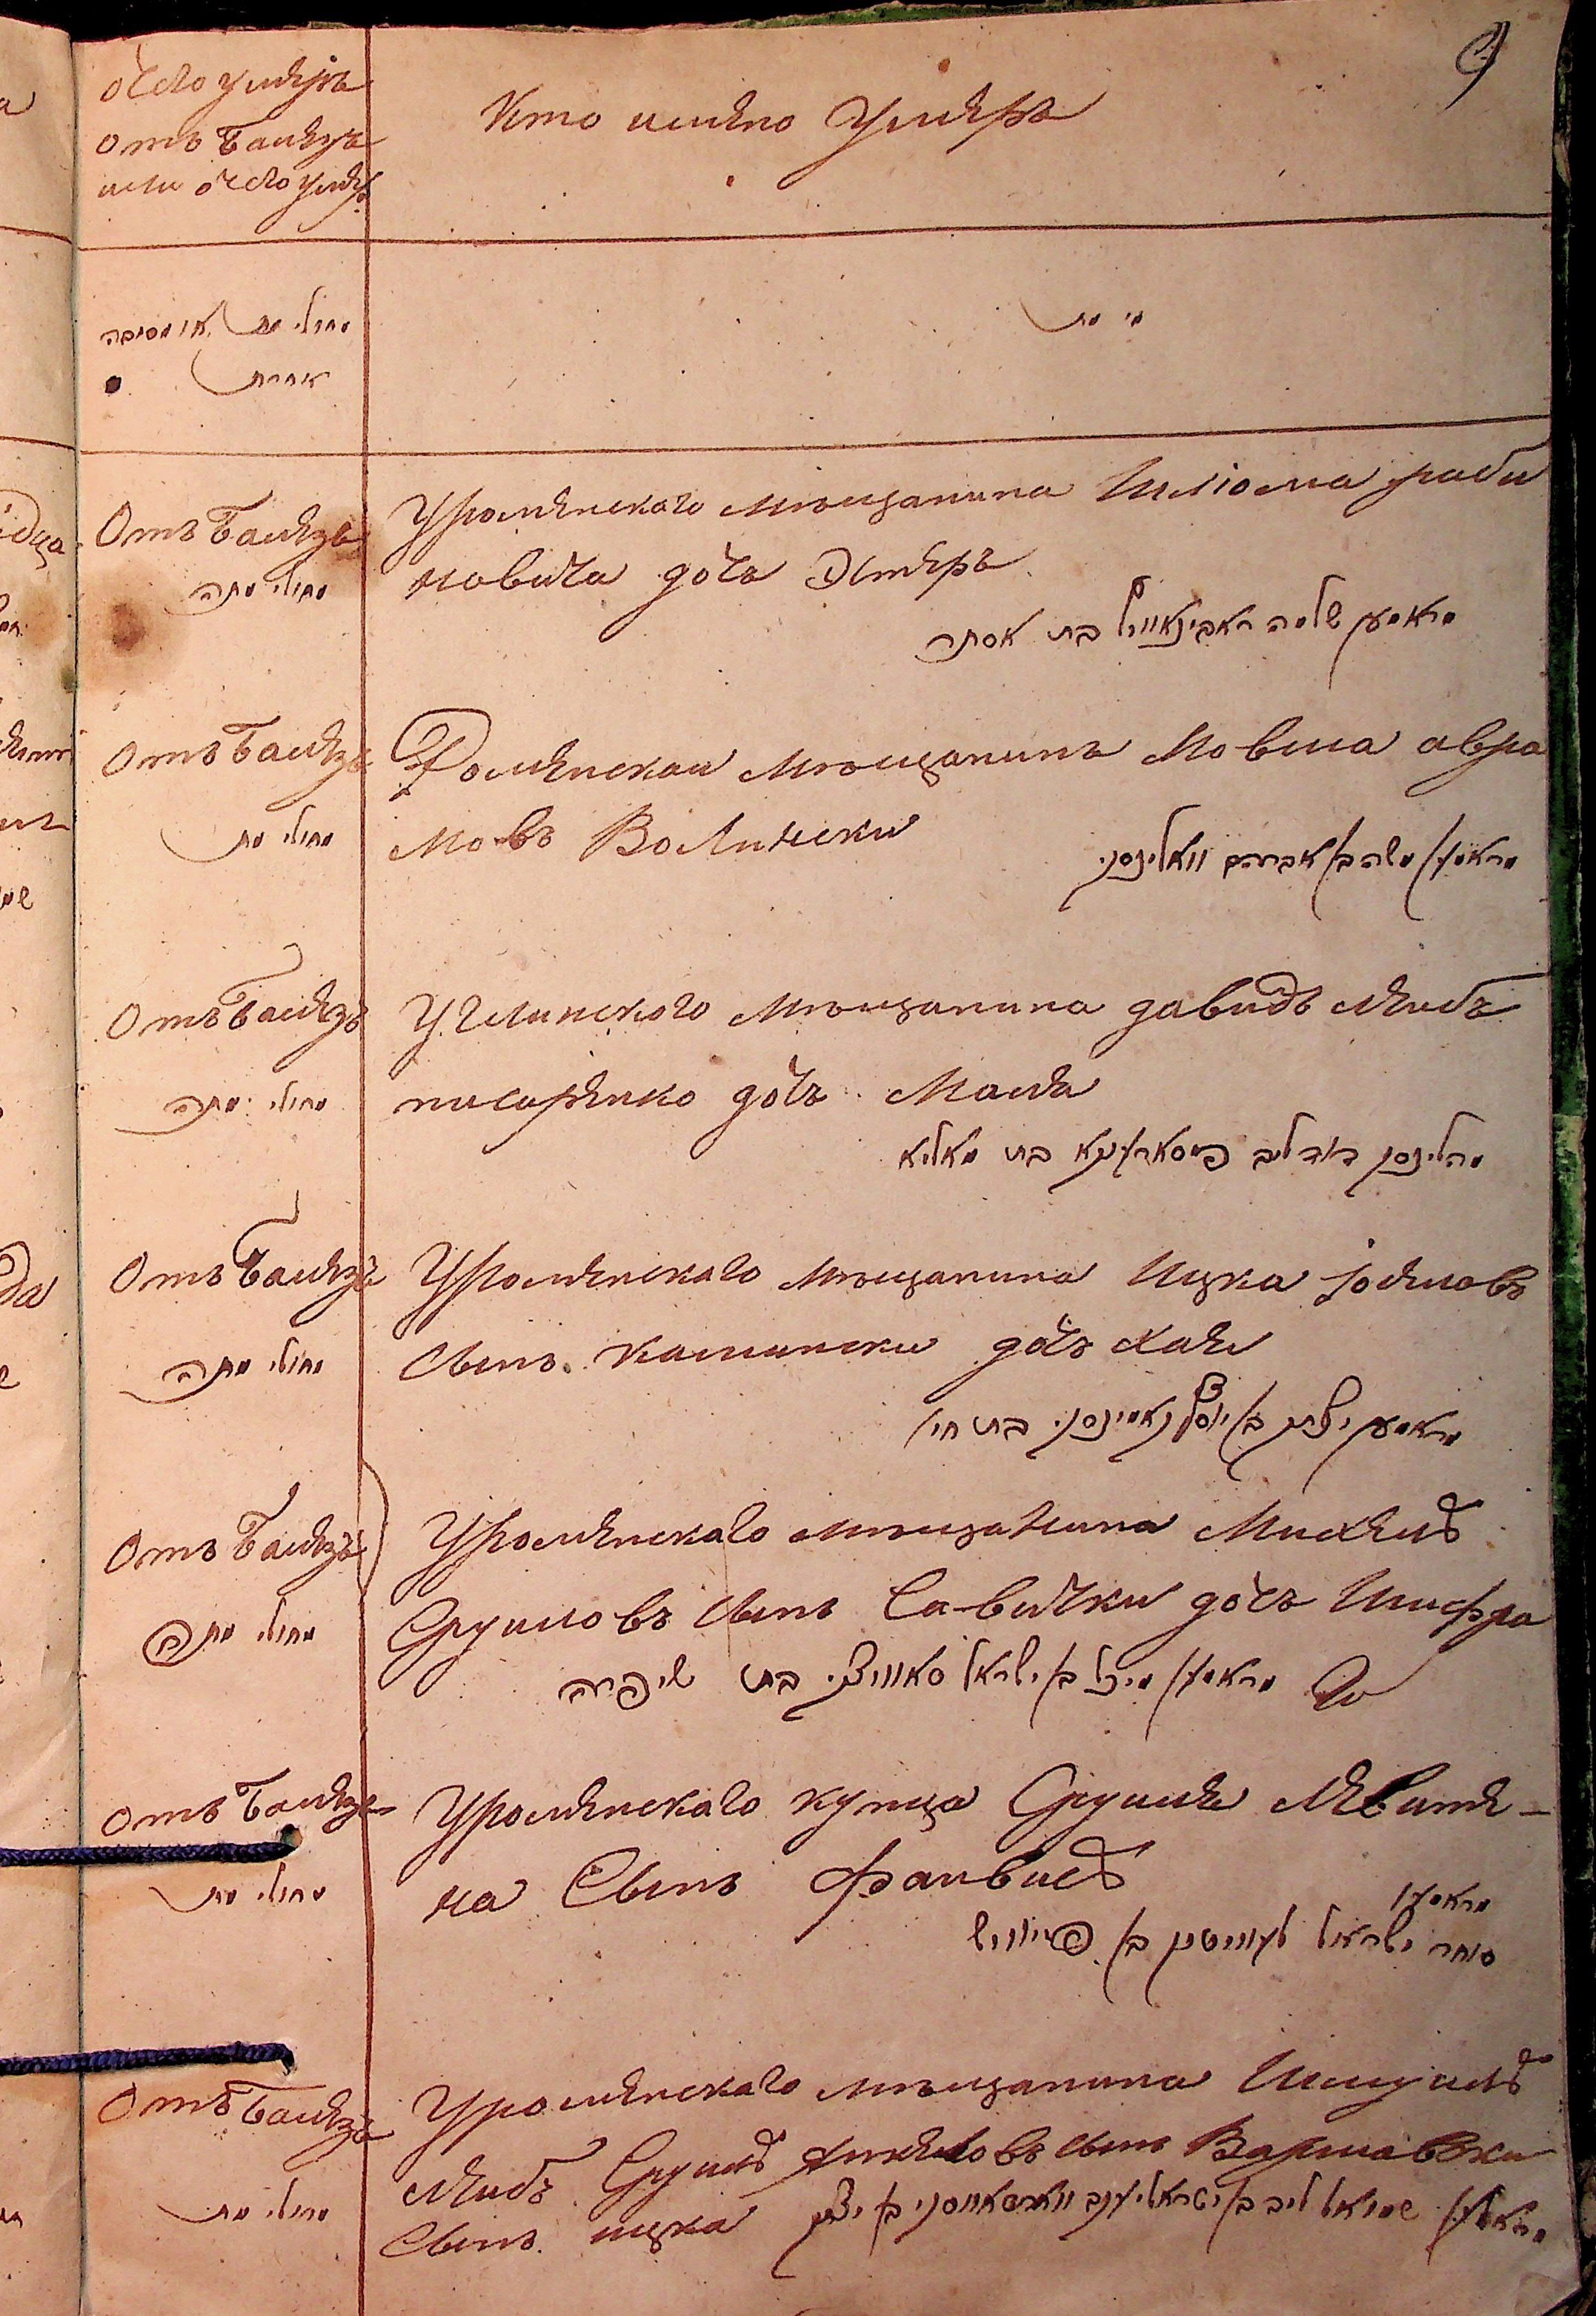 отъ чего умеръ
отъ Балезъ
или отъ чего умеръ
Кто имено Умеръ
מחולי מת
מי מת
Отъ Балезъ
מחולי מתה
Уроменскаго мѣщанина Шлiома раби
новича дочь Эстеръ
מראמען שלמה ראבינאוויץ בת אסתר
Отъ Балезъ
מחולי מת
Роменскаи мѣщанинъ Мовша авра
мовъ Волински
מראמען משה בן אברהם וואלינסקי
Отъ Балезъ
מחולי מתה
Углинскаго мѣщанина давидъ лейбъ
писаренко дочь Маля
דוד ליב פיסארענקא בת מאליא
Отъ Балезъ
מחולי מתה
Уроменскаго мѣщанина Ицка
сынъ Камински дочь Хая
מראמען יצחק בן יוסף קאמינסקי בת חי'
Отъ Балезъ
מחולי מתה
Уроменскаго мѣщанина Михель
Сруловъ сынъ Савички дочь Шифра
מראמען מיכל בן ישראל סאוויצקי בת שיפרה
Отъ Балезъ
מחולי מת
Уроменскаго купца Сруля Левити-
на Сынъ Файвишъ
מראמען
סוחר ישראל לעוויטין בן פייוויש
Отъ Балезъ
מחולי מת
Уроменскаго мѣщанина Шмуилъ
лейбъ Сруль сынъ Варшавски
Сынъ ицка
מראמען שמואל ליב בן ישראל ווארשאווסקי בן יצחק